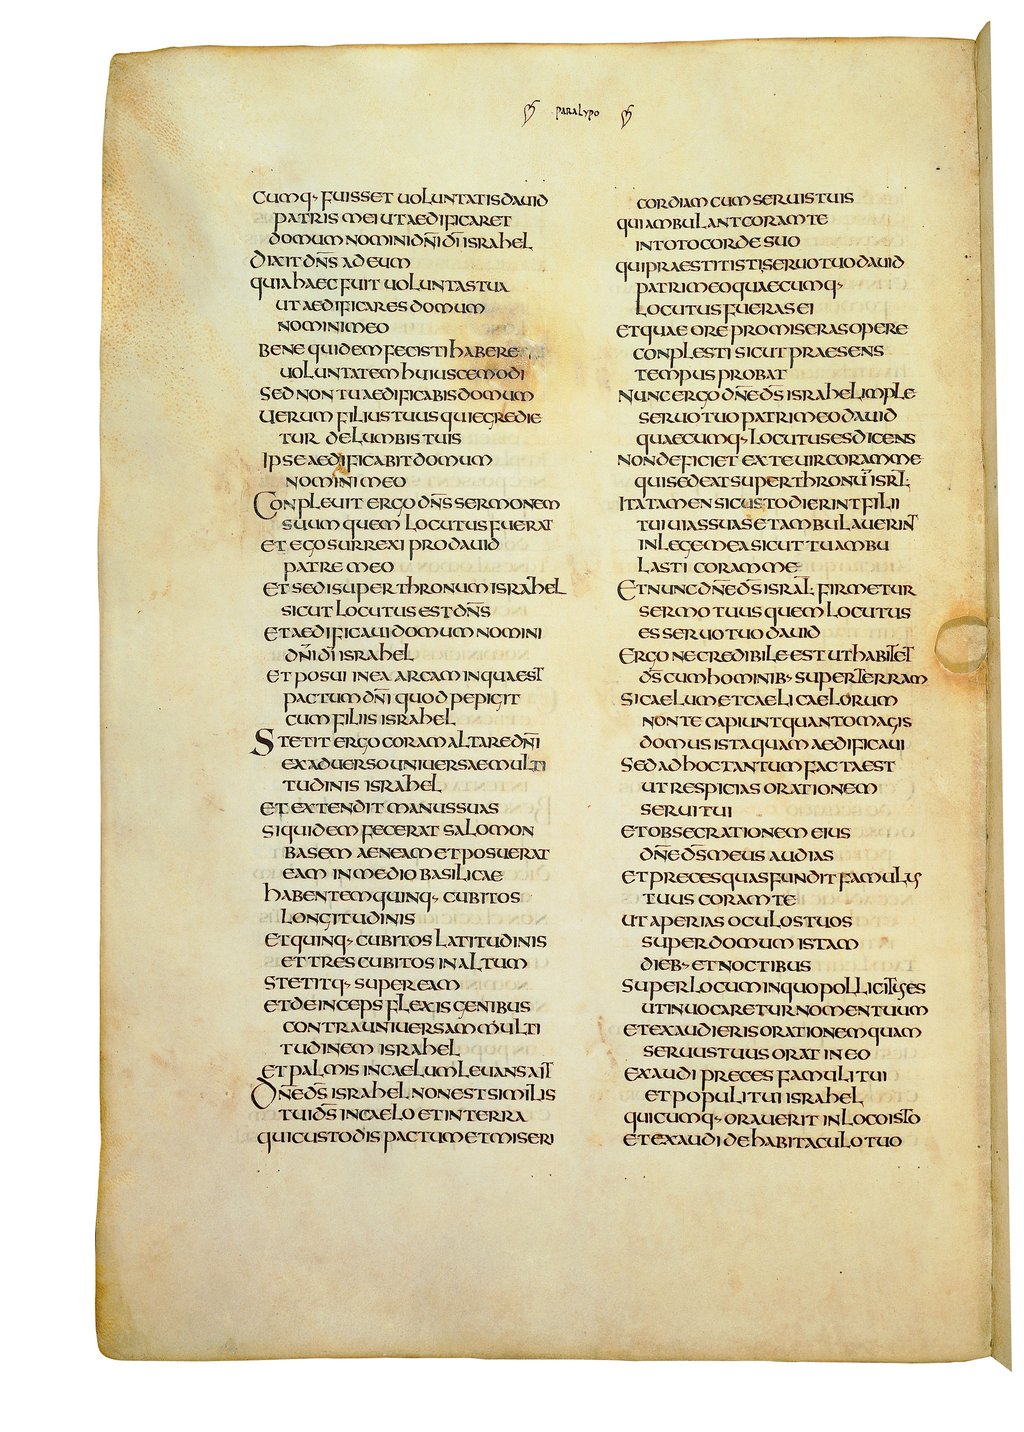 paralypo
cumq· fuisset uoluntatis dauid
patris mei ut aedificaret
domum nomini dn̄i dī israhel
dixit dn̄s ad eum
quia haec fuit uoluntas tua
ut aedificares domum
nomini meo
bene quidem fecisti habere
uoluntatem huiuscemodi
sed non tu aedificabis domum
uerum filius tuus qui egredie
tur de lumbis tuis
ipse aedificabit domum
nomini meo
Conpleuit ergo dn̄s sermonem
suum quem locutus fuerat
et ego surrexi pro dauid
patre meo
et sedi super thronum israhel
sicut locutus est dn̄s
et aedificaui domum nomini
dn̄i dī israhel
et posui in ea arcam in qua est
pactum dn̄i quod pepigit
cum filiis israhel
Stetit ergo coram altare dn̄i
ex aduerso uniuersae multi
tudinis israhel
et extendit manus suas
siquidem fecerat salomon
basem aeneam et posuerat
eam in medio basilicae
habentem quinq· cubitos
longitudinis
et quinq· cubitos latitudinis
et tres cubitos in altum
stetitq· super eam
et deinceps flexis genibus
contra uniuersam multi
tudinem israhel
et palmis in caelum leuans ait
Dn̄e ds̄ israhel non est similis
tui ds̄ in caelo et in terra
qui custodis pactum et miseri
cordiam cum seruis tuis
qui ambulant coram te
in toto corde suo
qui praestitisti seruo tuo dauid
patri meo quaecumq·
locutus fueras ei
et quae ore promiseras opere
conplesti sicut praesens
tempus probat
Nunc ergo dn̄e ds̄ israhel imple
seruo tuo patri meo dauid
quaecumq· locutus es dicens
non deficiet ex te uir coram me
qui sedeat super thronū isrl·
ita tamen si custodierint filii
tui uias suas et ambulauerint
in lege mea sicut tu ambu
lasti coram me
Et nunc dn̄e ds̄ isral· firmetur
sermo tuus quem locutus
es seruo tuo dauid
Ergo ne credibile est ut habitet
ds̄ cum hominib· super terram
si caelum et caeli caelorum
non te capiunt quanto magis
domus ista quam aedificaui
Sed ad hoc tantum facta est
ut respicias orationem
serui tui
et obsecrationem eius
dn̄e ds̄ meus audias
et preces quas fundit famulus
tuus coram te
ut aperias oculos tuos
super domum istam
dieb· et noctibus
super locum in quo pollicitus es
ut inuocaretur nomen tuum
et exaudieris orationem quam
seruus tuus orat in eo
exaudi preces famuli tui
et populi tui israhel
quicumq· orauerit in loco isto
et exaudi de habitaculo tuo